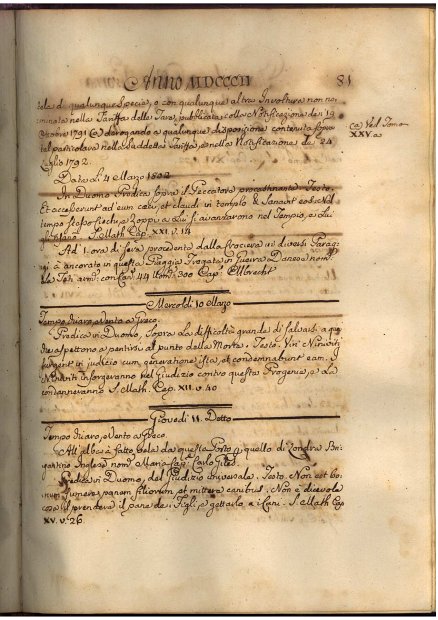 Anno MDCCCII 81
tela di qualunque Specie, o con qualunque altro Involture non no=
minato nella Tariffa delle Tare, pubblicata colla Notificazione dei 19
Ottobre 1791 (a) derogando a qualunque disposizione contenuta sopra
tal particolare nella Suddetta Tariffa, e nella Notificazione de 24
Luglio 1792.
(a) Ved. Tomo
XXV. a
Data li 4 Marzo 1802
In Duomo Predica sopra il Peccatore procrastinante. Testo.
Et accesserunt ad eum caeci, et claudi in templo & Sanavit eos. Nel
tempo stesso i Ciechi, e Zoppi a Lui si avanzarono nel Tempio, e Lui
gli sanò. S. Math. Cap. XXI. v. 14
Ad 1. ora di sera procedente dalla Crociera in diversi Parag=
gi è ancorato in questa Spiaggia Fregata in Guerra Danese nom.
La Teti arm. con Can. 44 Uom. 300 Cap.
Mercoldì 10 Marzo
Tempo chiaro, e Vento a Greco.
Predica in Duomo, Sopra La difficoltà grande di salvarsi a que
che aspettono a pentirsi al punto della Morte. Testo. Viri Ninivitæ
surgent in judicio cum generatione ista, et condemnabunt eam. I
Niniviti Insorgeranno nel Giudizio contro questa Progenie, e La
condanneranno S. Math. Cap. XII. v. 40
Giovedì 11. Detto
Tempo chiaro, e Vento a Greco.
All'alba à fatto vela da questo Porto p quello di Londra Bri=
gantino Inglese nom. Maria Cap. Carlo Giles.
Predica in Duomo, del Giudizio Universale. Testo. Non est bo=
num sumere panem filiorum, et mittere canibus. Non è dicevole
cosa il prendere il pane dei Figli, e gettarlo a i Cani. S. Math. Cap.
XV. v. 26